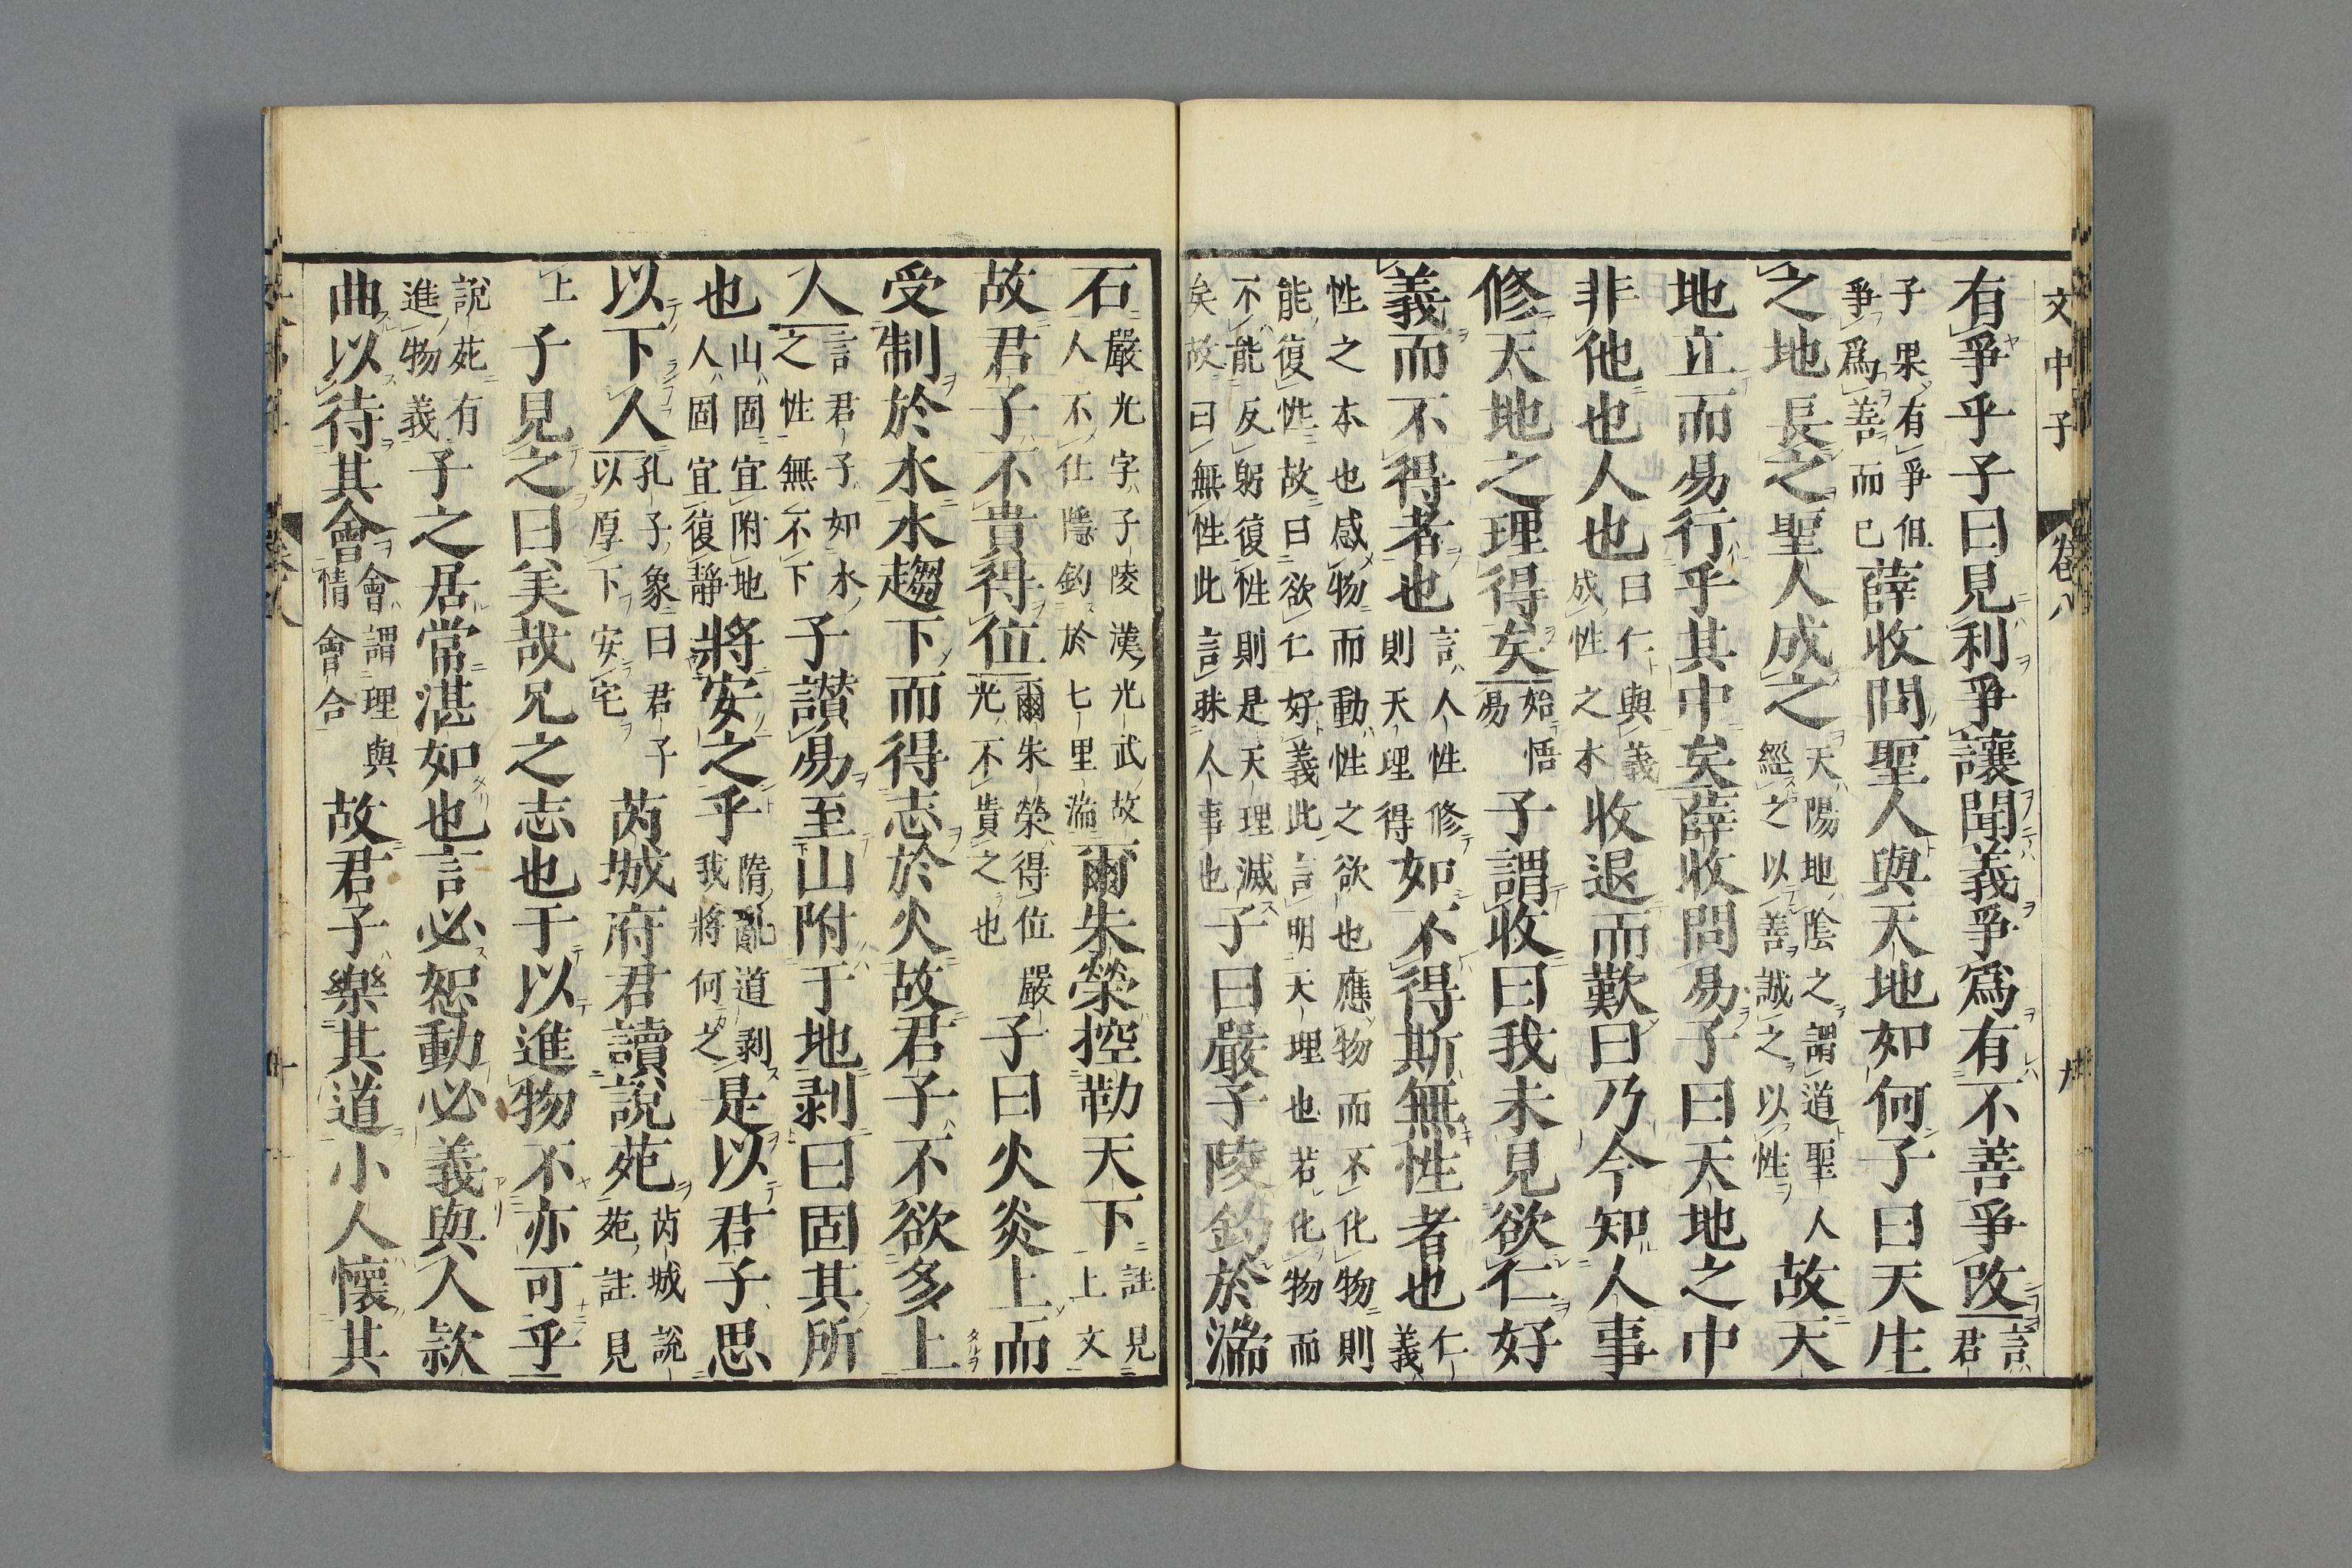 文中子
卷八
九
有爭乎子曰見利爭讓聞義爭爲有不善爭改言君
子果有爭但爭爲善而已薛收問聖人與天地如何子曰天生
之地長之聖人成之天陽地陰之謂道聖人經之以善誠之以性故天
地立而易行乎其中矣薛收問易子曰天地之中
非他也人也曰仁與義成性之本收退而歎曰乃今知人事
修天地之理得矣始悟易子謂收曰我未見欲仁好
義而不得者也言人性修則天理得如不得斯無性者也仁義
性之本也感物而動性之欲也應物而不化物則能復性故曰欲仁好義此言明天理也若化物而
不能反躬復性則是天理滅矣故曰無性此言殊人事也子曰嚴子陵釣於湍
石嚴光字子陵漢光武故人不仕隱釣於七里湍爾朱榮控勒天下註見上文
故君子不貴得位爾朱榮得位嚴光不貴之也子曰火炎上而
受制於水水趨下而得志於火故君子不欲多上
人言君子如水之性無不下子讃易至山附于地剥曰固其所
也山固宜附地人固宜復靜將安之乎隋亂道剥我將何之是以君子思
以下人孔子象曰君子以厚下安宅芮城府君讀說苑芮城說苑註見
上子見之曰美哉兄之志也于以進物不亦可乎
說苑有進物義子之居常湛如也言必恕動必義與人款
曲以待其會會謂理與情會合故君子樂其道小人懷其